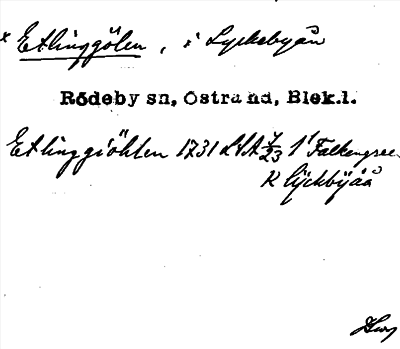 * Etlinggölen, i Lyckebyån
Rödeby sn, Östra hd, Blek.l.
Etlinggiöhlen 1731 LSA 7/23 1¹ Falkengree
K lÿckbÿåå